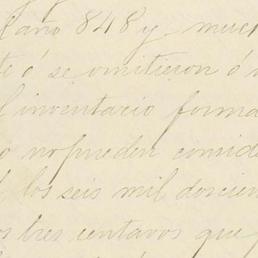 año 848 y
se omitieron ó
inventario forma
no pueden conside
los seis mil doscien
tres centavos que